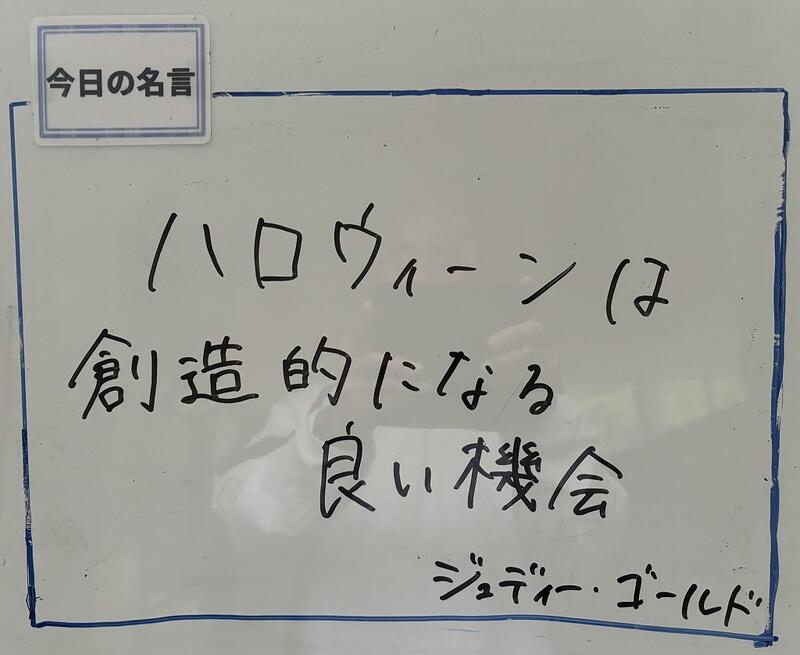 今日の名言
ハロウィーンは
創造的になる
良い機会
ジュディー・ゴールド